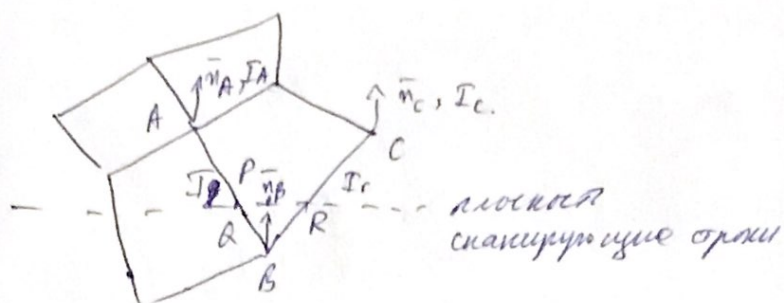 n̄_A, I_A
n̄_C, I_C.
A
C
P
n̄_B
I_r
Q
R
B
плоскость
сканирующие строки